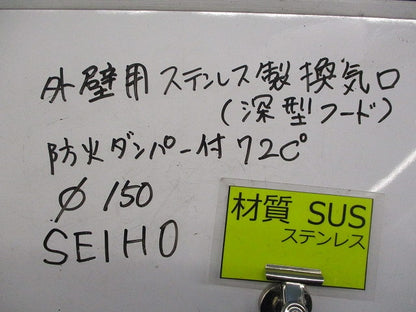 外壁用ステンレス製換気口
(深型フード)
防火ダンパー付72C°
φ150
SEIHO
材質 SUS
ステンレス